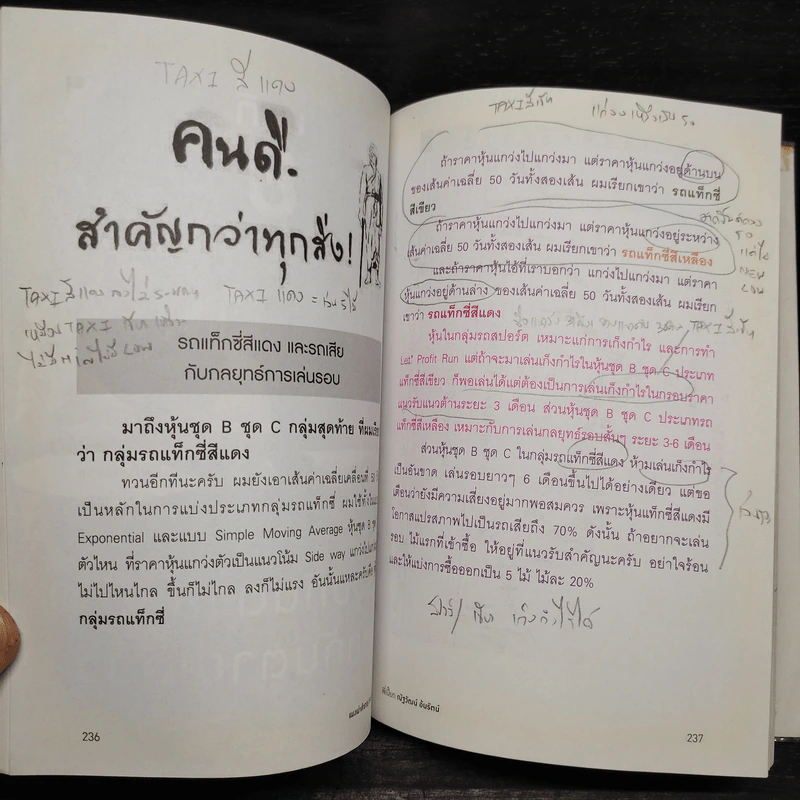 TAXI สีแดง
คนดี.
สำคัญกว่าทุกสิ่ง!
TAXI สีแดง
TAXI แดง =
TAXI
รถแท็กซี่สีแดง และรถเสีย
กับกลยุทธ์การเล่นรอบ
มาถึงหุ้นชุด B ชุด C กลุ่มสุดท้าย ที่ผม
ว่า กลุ่มรถแท็กซี่สีแดง
ทวนอีกทีนะครับ ผมยังเอาเส้นค่าเฉลี่ยเคลื่อนที่
เป็นหลักในการแบ่งประเภทกลุ่มรถแท็กซี่ ผมใช้ทั้ง
Exponential และแบบ Simple Moving Average หุ้นชุด B
ตัวไหน ที่ราคาหุ้นแกว่งตัวเป็นแนวโน้ม Side way แกว่งไป
ไม่ไปไหนไกล ขึ้นก็ไม่ไกล ลงก็ไม่แรง อันนั้นแหละครับคือ
กลุ่มรถแท็กซี่
236
TAXI สีเขียว
ถ้าราคาหุ้นแกว่งไปแกว่งมา แต่ราคาหุ้นแกว่งอยู่ด้านบน
ของเส้นค่าเฉลี่ย 50 วันทั้งสองเส้น ผมเรียกเขาว่า รถแท็กซี่
สีเขียว
ถ้าราคาหุ้นแกว่งไปแกว่งมา แต่ราคาหุ้นแกว่งอยู่ระหว่าง
เส้นค่าเฉลี่ย 50 วันทั้งสองเส้น ผมเรียกเขาว่า รถแท็กซี่สีเหลือง
และถ้าราคาหุ้นไอ้ที่เราบอกว่า แกว่งไปแกว่งมา แต่ราคา
หุ้นแกว่งอยู่ด้านล่าง ของเส้นค่าเฉลี่ย 50 วันทั้งสองเส้น ผมเรียก
เขาว่า รถแท็กซี่สีแดง
หุ้นในกลุ่มรถสปอร์ต เหมาะแก่การเก็งกำไร และการทำ
Let' Profit Run แต่ถ้าจะมาเล่นเก็งกำไรในหุ้นชุด B ชุด C ประเภท
แท็กซี่สีเขียว ก็พอเล่นได้แต่ต้องเป็นการเล่นเก็งกำไรในกรอบราคา
แนวรับแนวต้านระยะ 3 เดือน ส่วนหุ้นชุด B ชุด C ประเภทรถ
แท็กซี่สีเหลือง เหมาะกับการเล่นกลยุทธ์รอบสั้นๆ ระยะ 3-6 เดือน
ส่วนหุ้นชุด B ชุด C ในกลุ่มรถแท็กซี่สีแดง ห้ามเล่นเก็งกำไร
เป็นอันขาด เล่นรอบยาวๆ 6 เดือนขึ้นไปได้อย่างเดียว แต่ขอ
เตือนว่ายังมีความเสี่ยงอยู่มากพอสมควร เพราะหุ้นแท็กซี่สีแดงมี
โอกาสแปรสภาพไปเป็นรถเสียถึง 70% ดังนั้น ถ้าอยากจะเล่น
รอบ ไม้แรกที่เข้าซื้อ ให้อยู่ที่แนวรับสำคัญนะครับ อย่าใจร้อน
และให้แบ่งการซื้อออกเป็น 5 ไม้ ไม้ละ 20%
ณัฐวัฒน์ อ้นรัตน์
237